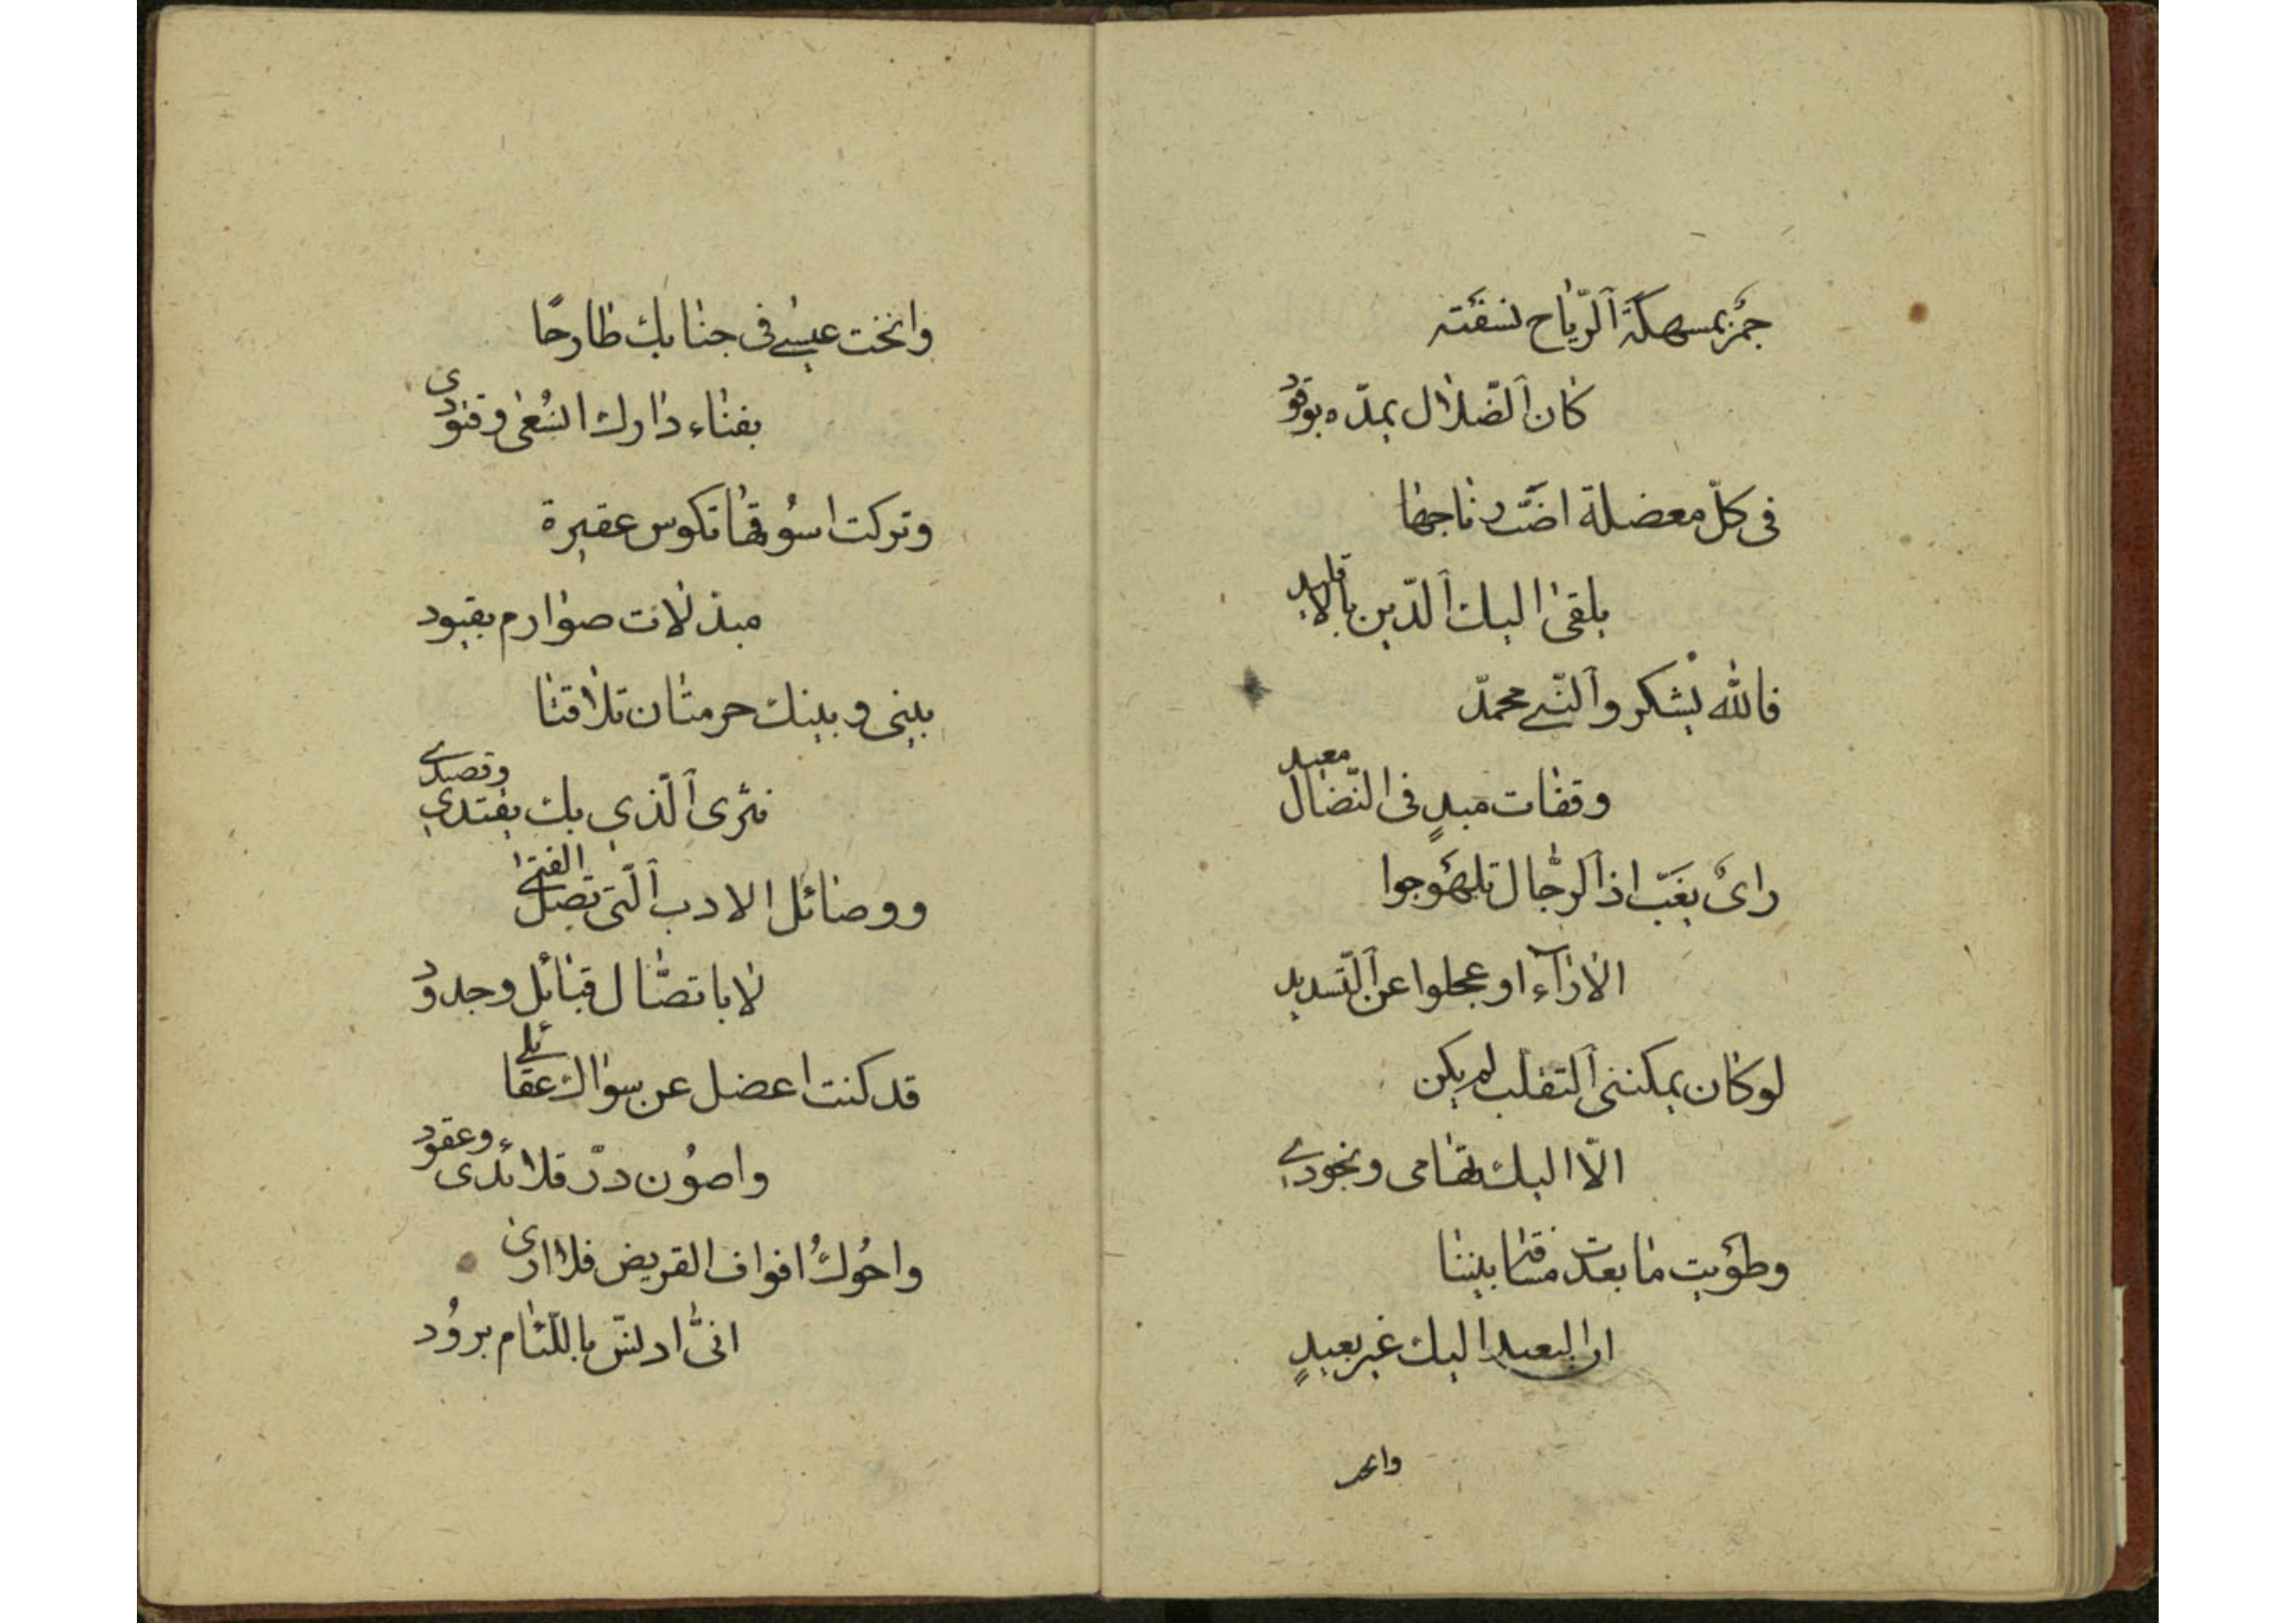 جمر بمسهكة الرّياح نسفته
كان الضّلال يمدّه بوقود
فى كلّ معضلة اضبّ رتاجها
يلقى اليك الدّين بالاقليد
فالله يشكر والنّبي محمدّ
وقفات مبدٍ فى النّضال معيد
راىٌ يغبّ اذا الرّجال تلهوجوا
الاراء او عجلوا عن التّسديد
لو كان يمكننى التقلب لم يكن
الّا اليك تهامى ونجودي
وطويت ما بعدت مسافة بيننا
ان البعيد اليك غير بعيدٍ
وانخت
وانخت عيسي فى جنابك طارحًا
بفناء دارك انسُعى وقتودى
وتركت اسوُقها تكوس عقيرة
مبذلات صوارم بقيود
بينى وبينك حرمتان تلاقتا
نثرى الّذي بك يقتدي وقصيدي
ووصائل الادب الّتى تصل الفتى
لا باتصّال قبائل وجدود
قد كنت اعضل عن سواك عقائلي
واصوُن درّ قلائدى وعقود
واحُوكُ افواف القريض فلا ارى
انّى ادنّس باللّئام بروُد